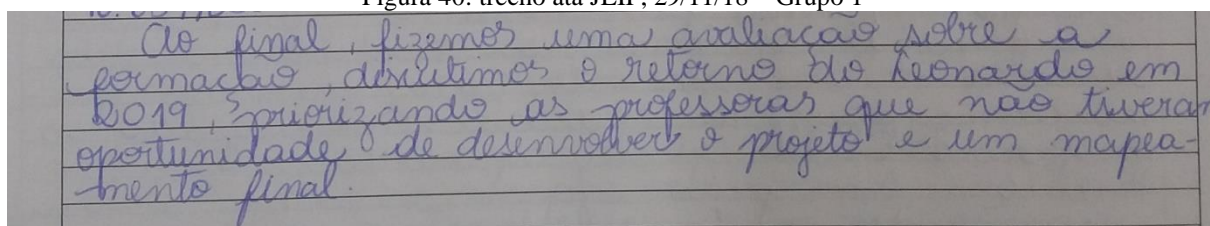 Ao final, fizemos uma avaliação sobre a
formação, discutimos o retorno do Leonardo em
2019, priorizando as professoras que não tivera
oportunidade de desenvolver o projeto e um mapea-
mento final.